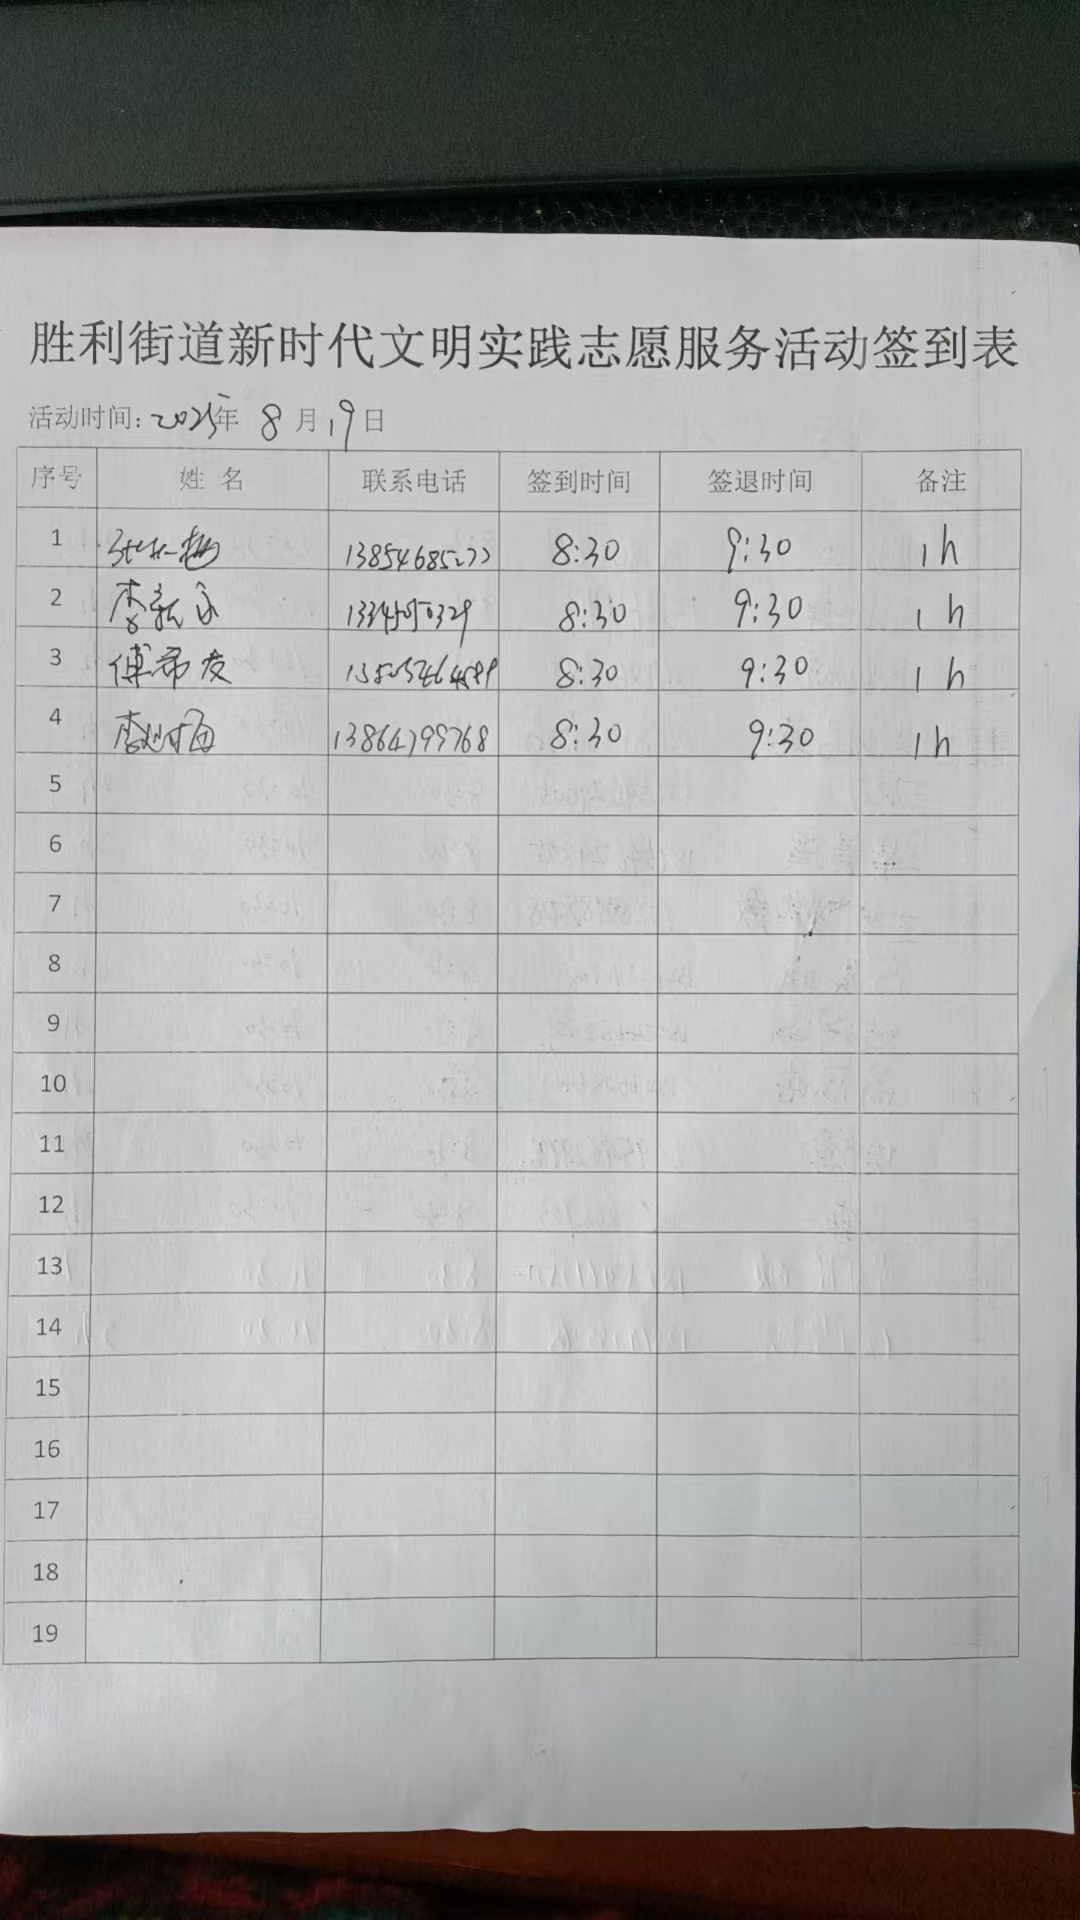 胜利街道新时代文明实践志愿服务活动签到表
活动时间: 2025年 8月19日
序号 姓名 联系电话 签到时间 签退时间 备注
1 13854685277 8:30 9:30 1h
2 李新永 8:30 9:30 1h
3 傅希友 8:30 9:30 1h
4 13864799768 8:30 9:30 1h
5
6
7
8
9
10
11
12
13
14
15
16
17
18
19